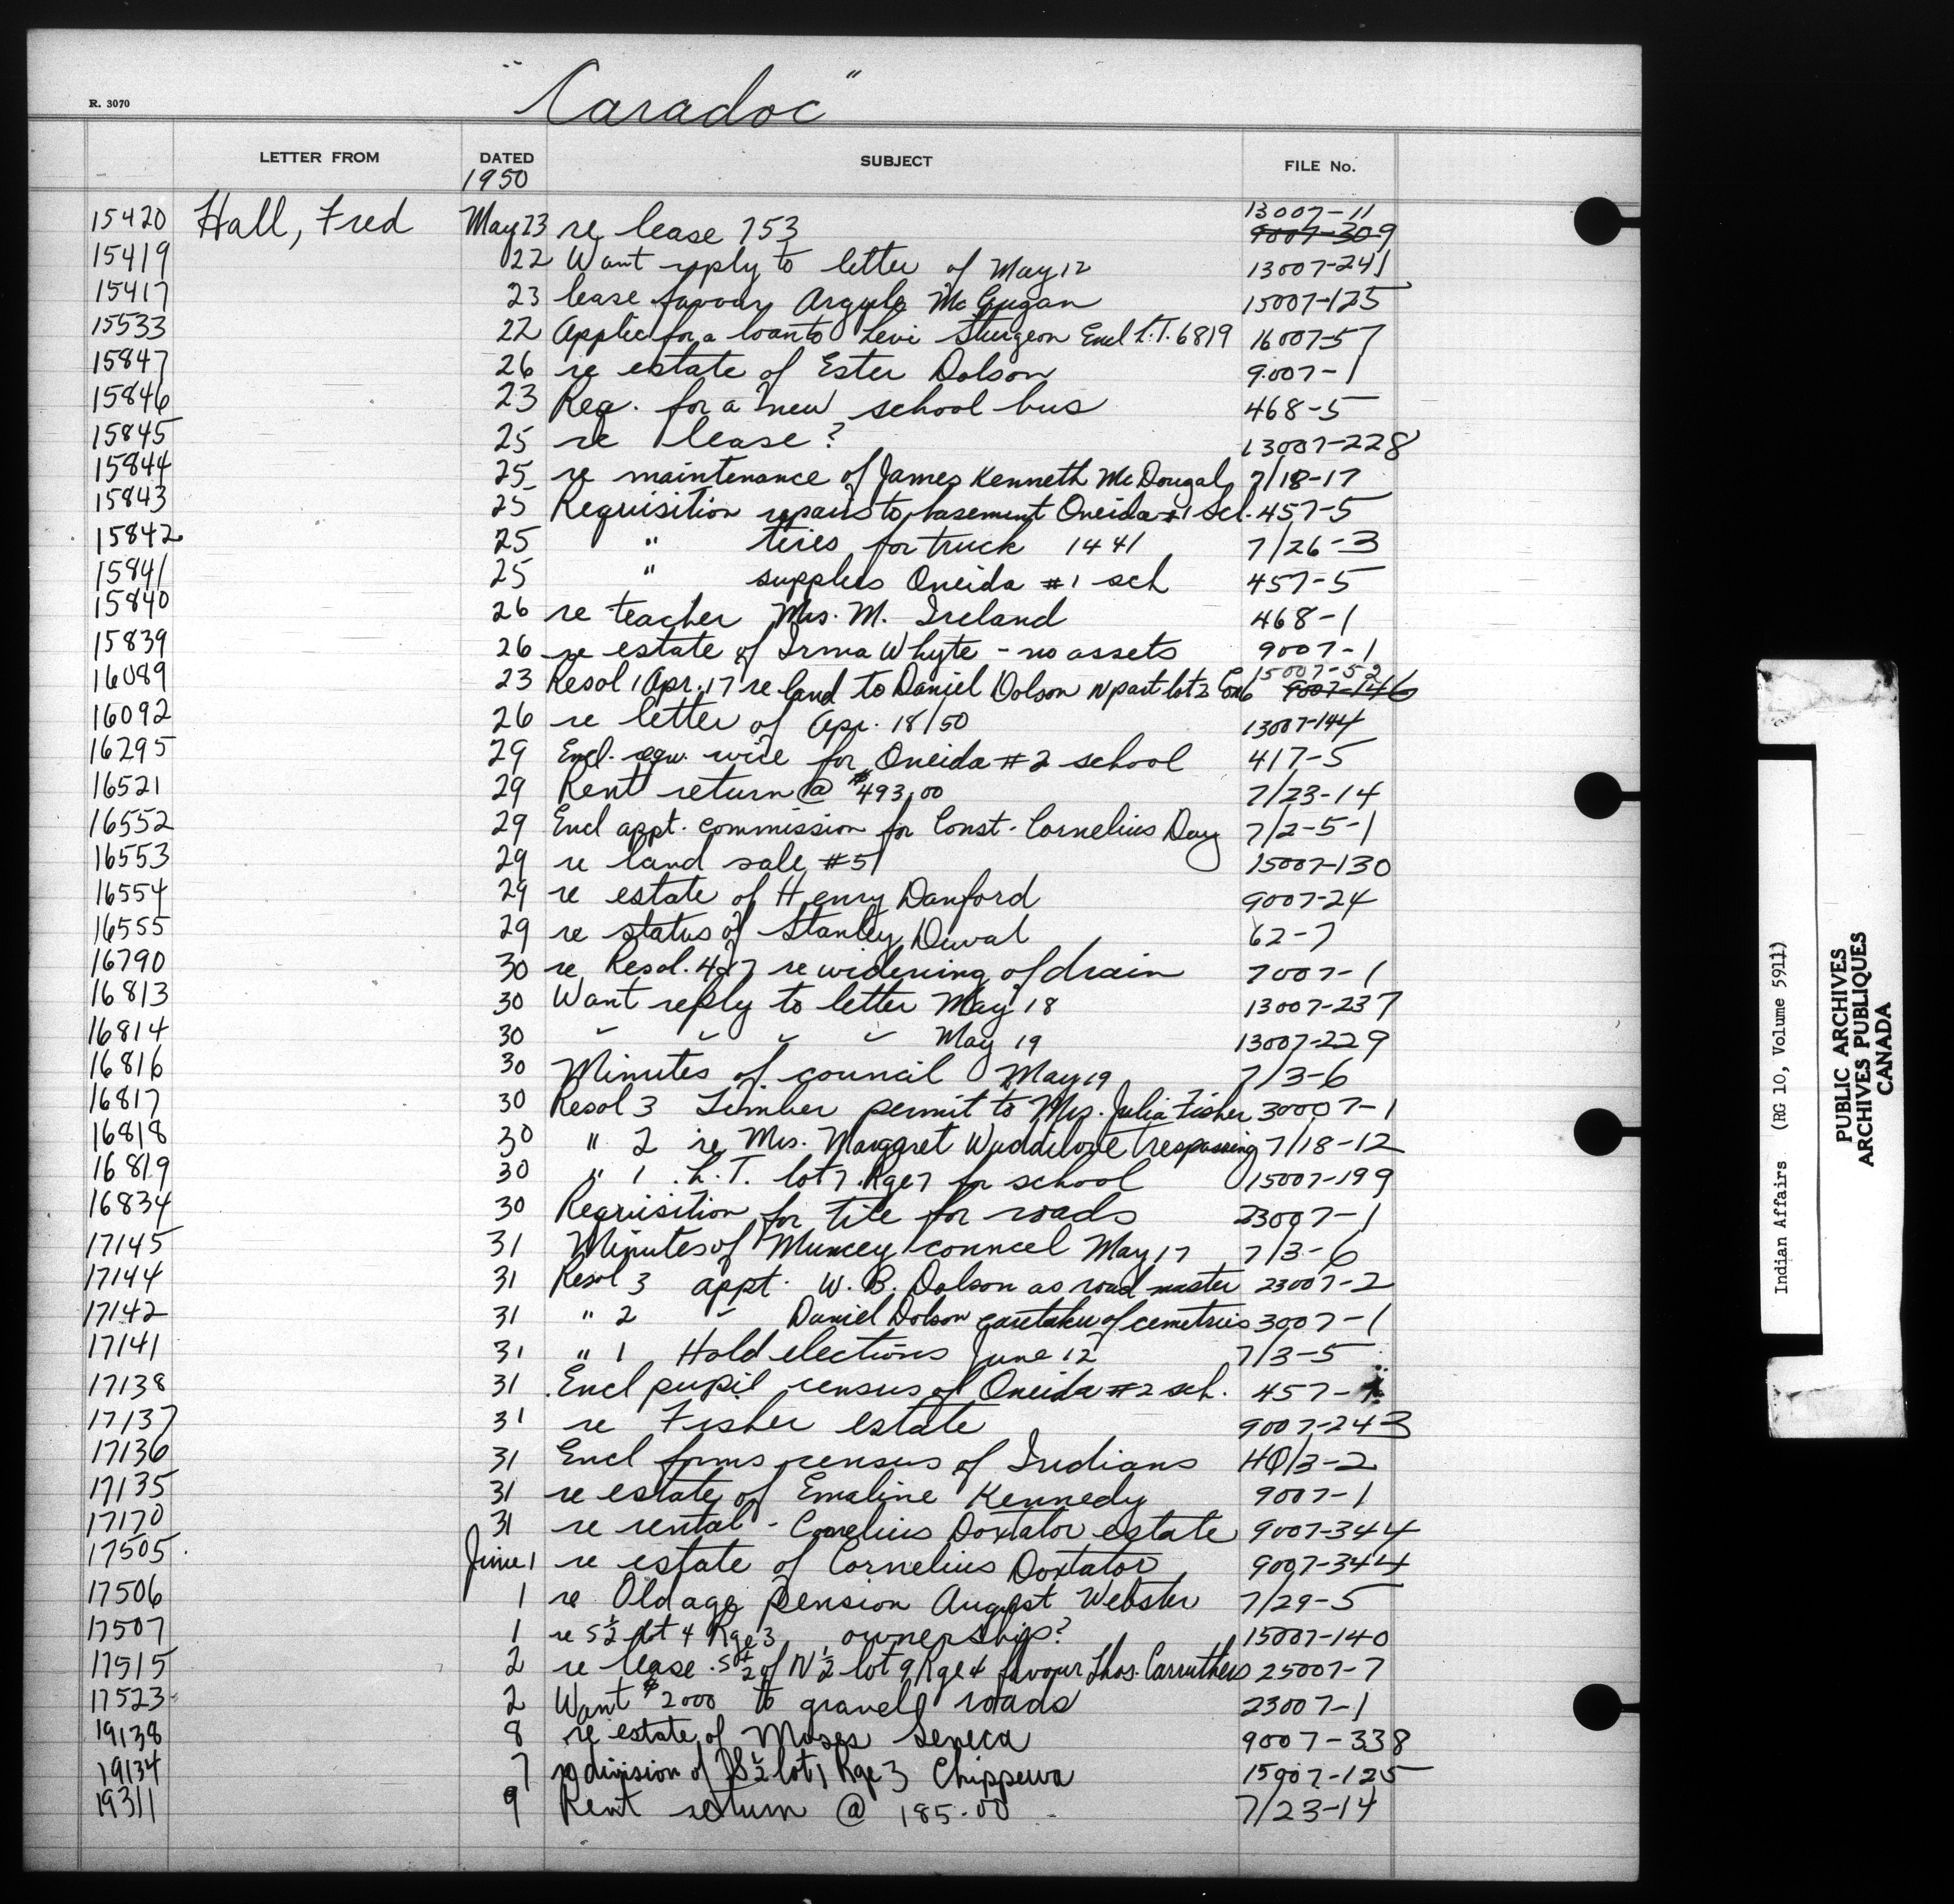 "Caradoc"
R. 3070
LETTER FROM DATED SUBJECT FILE No.
1950
15420 Hall, Fred May 23 re lease 753 13007-11 9007-309
15419 22 Want reply to letter of May 12 13007-241
15417 23 lease favour Argyle McGugan 15007-125
15533 22 Applic for a loan to Levi Sturgeon Encl L.T. 6819 16007-57
15847 26 re estate of Ester Dolson 9007-1
15846 23 Req. for a new school bus 468-5
15845 25 re lease? 13007-228
15844 25 re maintenance of James Kenneth McDougal 7/18-17
15843 25 Requisition repairs to basement Oneida #1 Scl. 457-5
15842 25 " tires for truck 1441 7/26-3
15841 25 " supplies Oneida #1 sch 457-5
15840 26 re teacher Mrs. M. Ireland 468-1
15839 26 re estate of Irma Whyte - no assets 9007-1
16089 23 Resol 1 Apr. 17 re land to Daniel Dolson N part lot 2 Con 6 15007-52 9007-146
16092 26 re letter of Apr. 18/50 13007-144
16295 29 Encl. requ. wire for Oneida #2 school 417-5
16521 29 Rent return @ $493.00 7/23-14
16552 29 Encl appt. commission for Const. Cornelius Day 7/2-5-1
16553 29 re land sale #51 15007-130
16554 29 re estate of Henry Danford 9007-24
16555 29 re status of Stanley Duval 62-7
16790 30 re Resol. 4 re widening of drain 7007-1
16813 30 Want reply to letter May 18 13007-237
16814 30 " " " " May 19 13007-229
16816 30 Minutes of council May 19 7/3-6
16817 30 Resol 3 Timber permit to Mrs. Julia Fisher 30007-1
16818 30 " 2 re Mrs. Margaret Waddilove trespassing 7/18-12
16819 30 " 1 L.T. lot 7 Rge 7 for school 15007-199
16834 30 Requisition for tile for roads 23007-1
17145 31 Minutes of Muncey councel May 17 7/3-6
17144 31 Resol 3 appt. W. B. Dolson as road master 23007-2
17142 31 " 2 " Daniel Dolson caretaker of cemetries 3007-1
17141 31 " 1 Hold elections June 12 7/3-5
17138 31 Encl pupil census of Oneida #2 sch. 457-
17137 31 re Fisher estate 9007-243
17136 31 Encl forms census of Indians 40/3-2
17135 31 re estate of Emaline Kennedy 9007-1
17170 31 re rental - Cornelius Doxtator estate 9007-344
17505 June 1 re estate of Cornelius Doxtator 9007-344
17506 1 re Old age Pension August Webster 7/29-5
17507 1 re S½ lot 4 Rge 3 ownership? 15007-140
17515 2 re lease S½ of N½ lot 9 Rge 4 favour Thos. Carruthers 25007-7
17523 2 Want $2000 to gravell roads 23007-1
19138 8 re estate of Moses Seneca 9007-338
19134 7 re division of S½ lot 1 Rge 3 Chippewa 15007-125
19311 9 Rent return @ 185.00 7/23-14
Indian Affairs (RG 10, Volume 5911)
PUBLIC ARCHIVES
ARCHIVES PUBLIQUES
CANADA